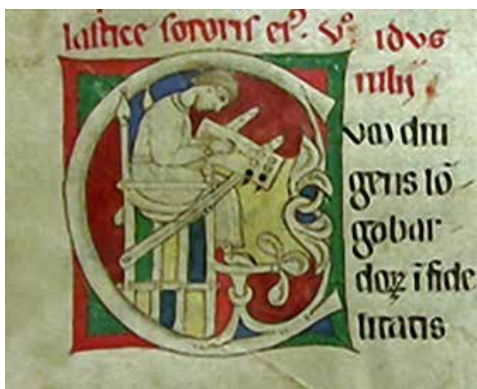 lastice sororis eiꝰ. vº. idus
iulij
CUM diu
gens lō
gobar
doꝝ īfide
litatis